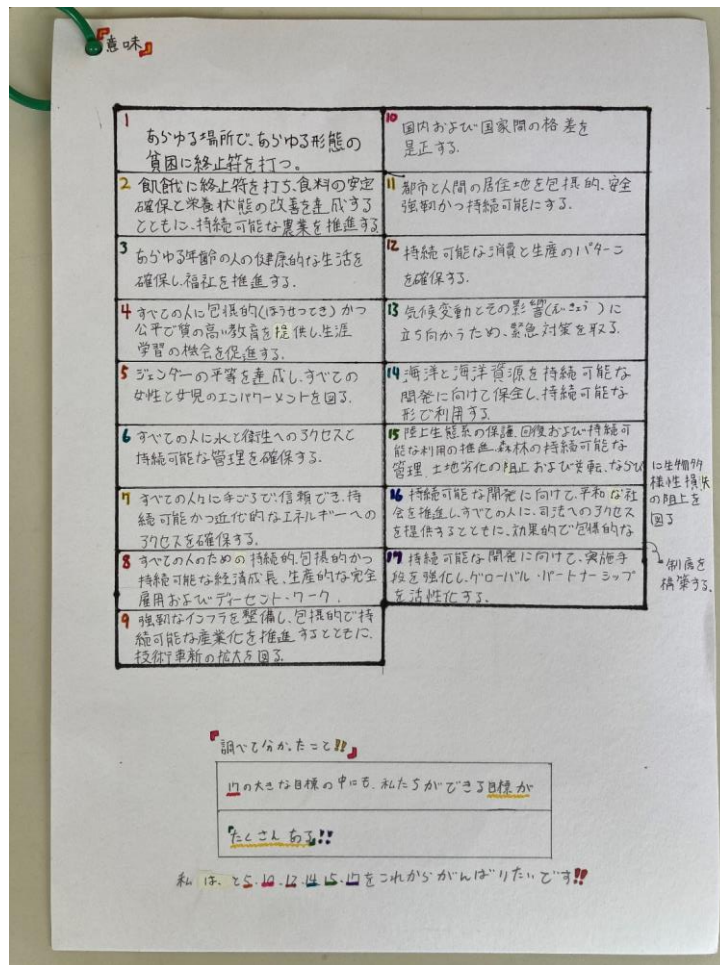 『意味』
1
あらゆる場所で、あらゆる形態の
貧困に終止符を打つ。
2 飢餓に終止符を打ち、食料の安定
確保と栄養状態の改善を達成する
とともに、持続可能な農業を推進する
3
あらゆる年齢の人の健康的な生活を
確保し、福祉を推進する。
4 すべての人に包摂的(ほうせつてき)かつ
公平で質の高い教育を提供し、生涯
学習の機会を促進する。
5 ジェンダーの平等を達成し、すべての
女性と女児のエンパワーメントを図る。
6 すべての人に水と衛生へのアクセスと
持続可能な管理を確保する。
7 すべての人々に手ごろで、信頼でき、持
続可能かつ近代的なエネルギーへの
アクセスを確保する。
8 すべての人のための持続的、包摂的かつ
持続可能な経済成長、生産的な完全
雇用およびディーセント・ワーク。
9 強靭なインフラを整備し、包摂的で持
続可能な産業化を推進するとともに、
技術革新の拡大を図る。
10 国内および国家間の格差を
是正する。
11 都市と人間の居住地を包摂的、安全
強靭かつ持続可能にする。
12 持続可能な消費と生産のパターン
を確保する。
13 気候変動とその影響(えいきょう)に
立ち向かうため、緊急対策を取る。
14 海洋と海洋資源を持続可能な
開発に向けて保全し、持続可能な
形で利用する。
15 陸上生態系の保護、回復および持続可
能な利用の推進、森林の持続可能な
管理、土地劣化の阻止および逆転、ならび
に生物多
様性損失
の阻止を
図る
16 持続可能な開発に向けて、平和な社
会を推進し、すべての人に、司法へのアクセス
を提供するとともに、効果的で包摂的な
制度を
構築する。
17 持続可能な開発に向けて、実施手
段を強化し、グローバル・パートナーシップ
を活性化する。
『調べて分かったこと!!』
17の大きな目標の中にも、私たちができる目標が
たくさんある!!
私は、と5.10.12.14.15.17をこれからがんばりたいです!!